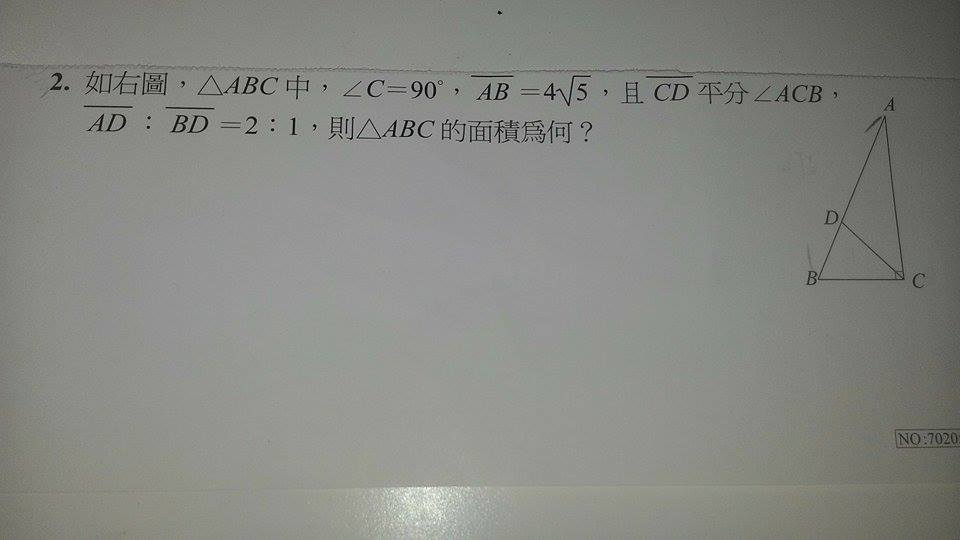 2. 如右圖，△ABC 中，∠C＝90°，AB＝4√5，且 CD 平分∠ACB，
AD：BD＝2：1，則△ABC 的面積爲何？
A
D
B
C
NO:7020